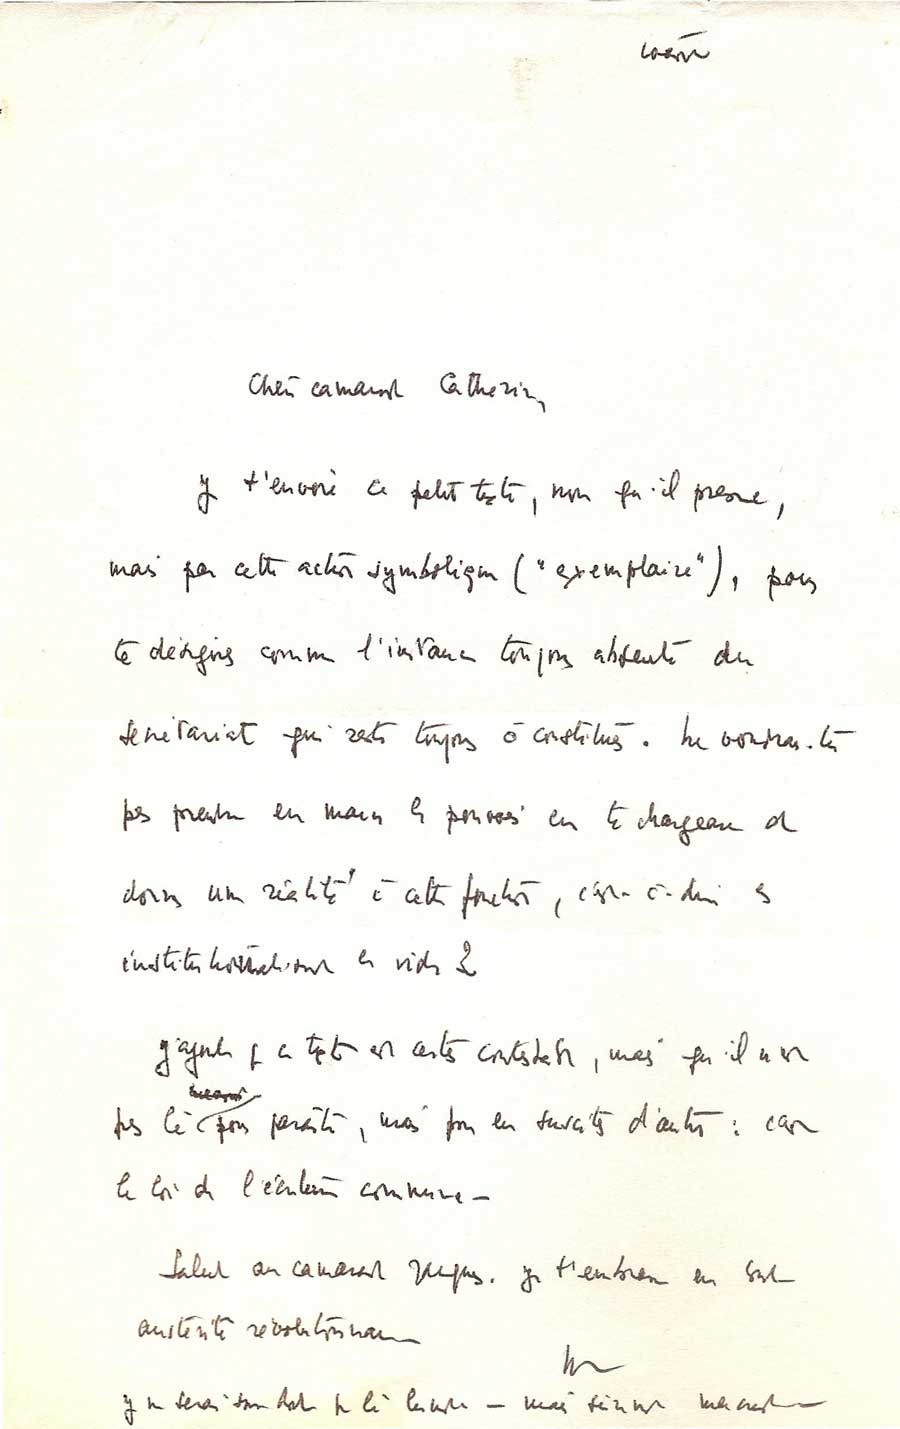 Chère camarade Catherine,
je t'envoie ce petit texte, non qu'il presse,
mais par cette action symbolique ("exemplaire"), pour
te désigner comme l'instance toujours absente du
secrétariat qui reste toujours à constituer. Ne voudrais-tu
pas prendre en main le pouvoir en te chargeant de
donner une réalité à cette fonction, c'est-à-dire en
institutionnalisant le vide ?
J'ajoute que ce texte est certes contestable, mais qu'il n'est
pas là pour paraître, mais pour en susciter d'autres : c'est
la loi de l'écriture commune —
Salut au camarade Jacques. Je t'embrasse en toute
austérité révolutionnaire
je ne serai sans doute pas là lundi — mais sinon mercredi